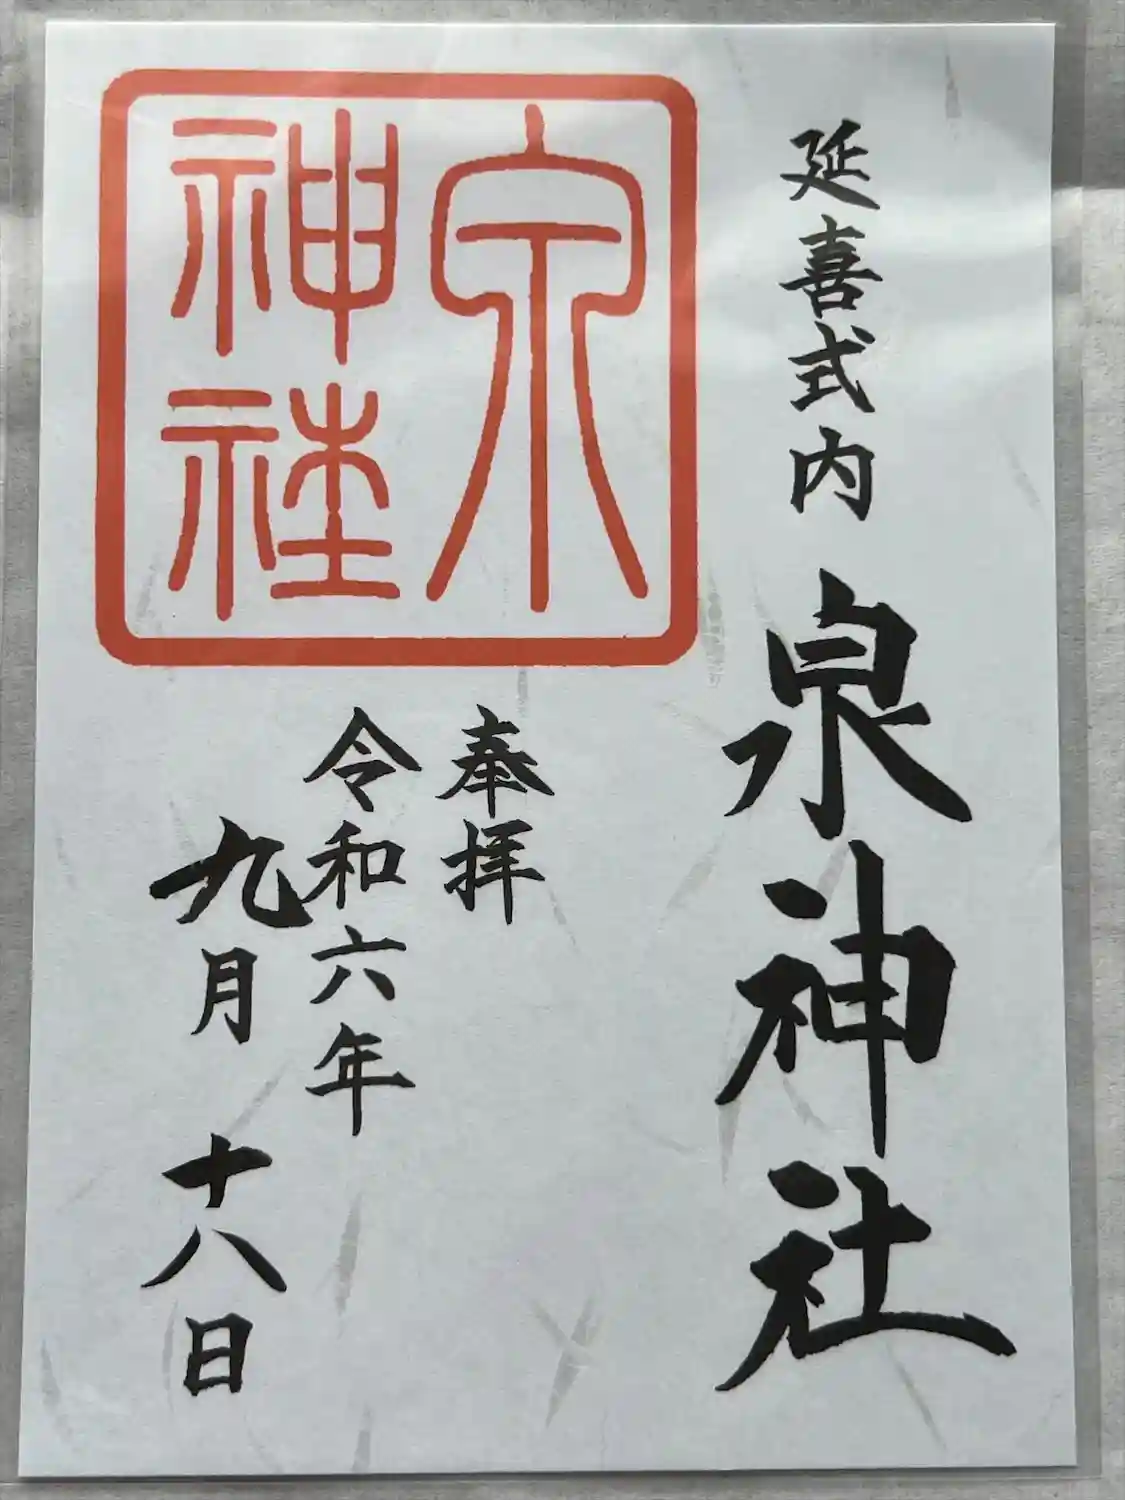 延喜式内 泉神社
泉
神社
奉拝
令和六年
九月十八日